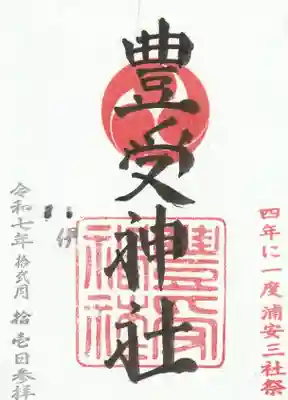 四年に一度浦安三社祭
豊受神社
令和七年 拾弐月 拾壱日参拝